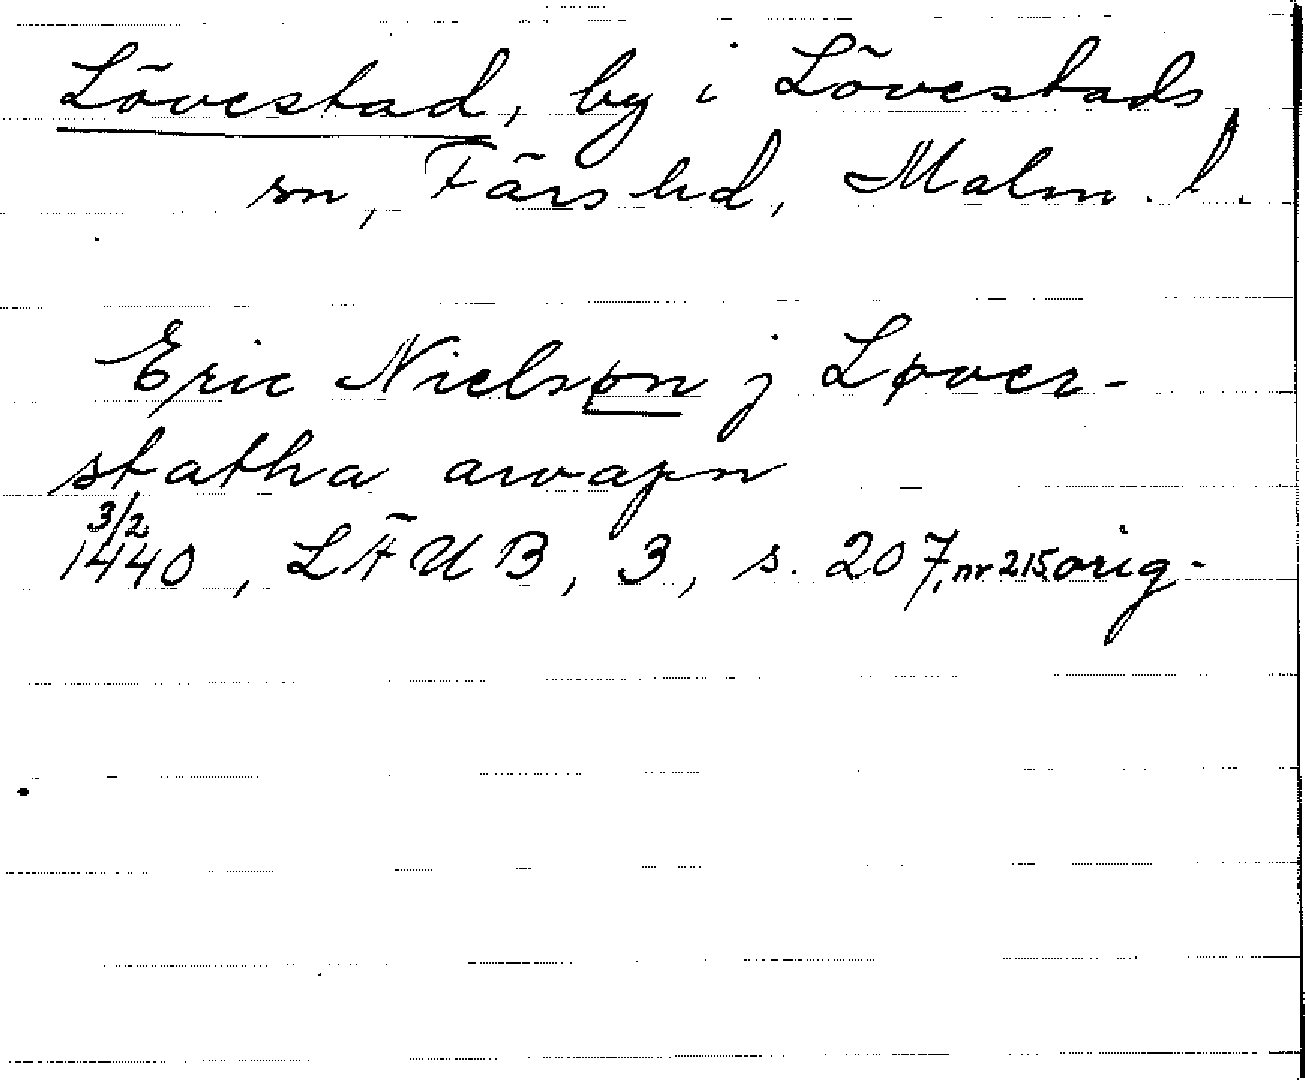 Lövestad, by i Lövestads
sn, Färs hd, Malm. l.
Eric Nielsøn j Løver-
statha awapn
3/2
1440, LÄUB, 3, s. 207, nr 215 orig.